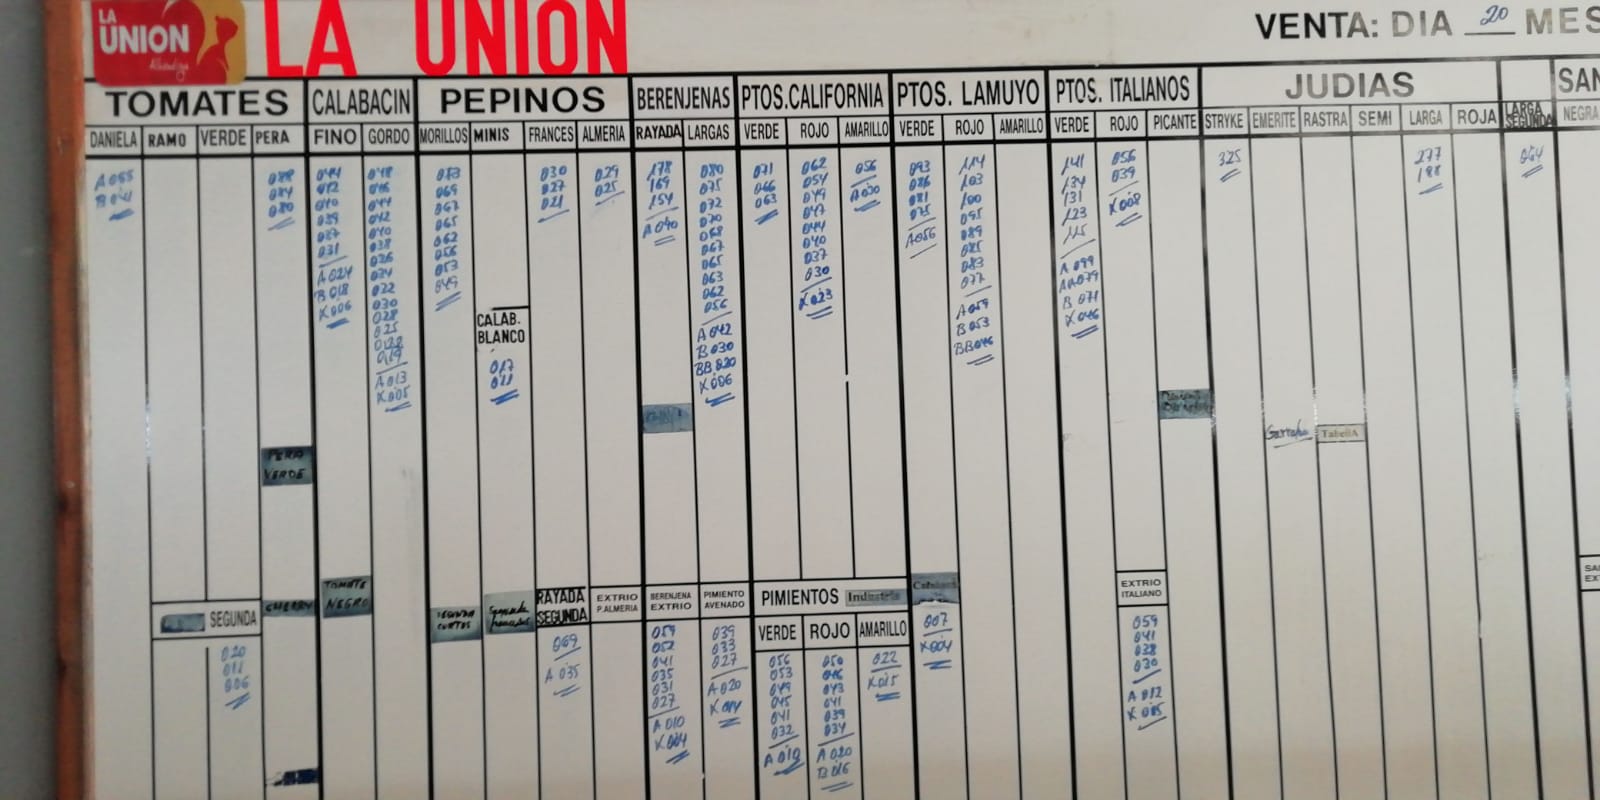 LA
UNION
LA UNION
VENTA: DIA 20 MES
TOMATES CALABACIN PEPINOS BERENJENAS PTOS.CALIFORNIA PTOS. LAMUYO PTOS. ITALIANOS JUDIAS LARGA SEGUNDA SAN
DANIELA RAMO VERDE PERA FINO GORDO MORILLOS MINIS FRANCES ALMERIA RAYADA LARGAS VERDE ROJO AMARILLO VERDE ROJO AMARILLO VERDE ROJO PICANTE STRYKE EMERITE RASTRA SEMI LARGA ROJA NEGRA
088
084
080
044
042
040
039
037
031
A 024
B 018
X 006
A 013
X 005
073
069
067
065
062
056
053
049
CALAB.
BLANCO
017
011
030
027
021
029
025
178
169
154
A 090
080
075
072
070
068
067
065
063
062
056
A 042
B 030
BB 020
X 006
071
066
063
062
054
049
047
044
040
037
030
X 023
056
A 030
093
086
081
075
A 056
114
103
100
095
089
085
083
077
A 059
B 053
BB 046
141
134
131
123
115
A 099
AA 079
B 071
X 046
056
039
X 008
325
277
188
064
PERA
VERDE
Garrafa
TabellA
SEGUNDA
020
011
006
CHERRY
TOMATE
NEGRO
SEGUNDA
CORTOS
Segunda
franceses
RAYADA
SEGUNDA
069
A 035
EXTRIO
P.ALMERIA
BERENJENA
EXTRIO
059
052
041
035
031
027
A 010
X 004
PIMIENTO
AVENADO
039
033
027
A 020
X 014
PIMIENTOS Industria
VERDE ROJO AMARILLO
056
053
049
045
041
032
A 010
050
046
043
041
039
034
A 020
B 016
022
X 015
007
X 004
EXTRIO
ITALIANO
059
041
038
030
A 012
X 005